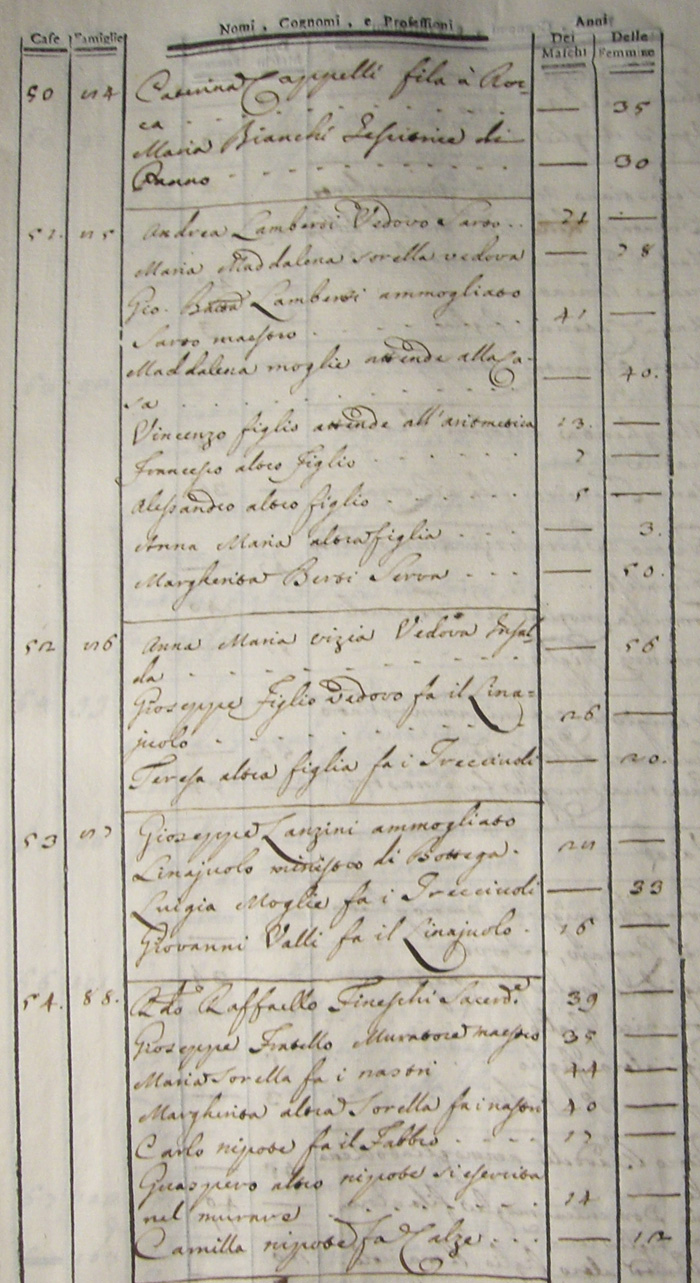 Case Famiglie Nomi, Cognomi, e Professioni Anni
Dei Maschi Delle Femmine
50 Caterina Cappelli fila à Roc=
ca — 35
Maria Bianchi Tessitrice di
Panno — 30
51 Andrea Lamberti Vedovo Sarto 71 —
Maria Maddalena sorella vedova — 78
Gio. Batta Lamberti ammogliato
Sarto maestro 41 —
Maddalena moglie attende alla Ca=
sa — 40.
Vincenzo figlio attende all'aritmetica 13. —
Francesco altro Figlio 7 —
Alessandro altro figlio 5 —
Anna Maria altra figlia — 3.
Margherita Berti Serva — 50.
52 Anna Maria Vedova — 56
Gioseppe Figlio Vedovo fa il Lina=
juolo 26 —
Teresa altra figlia fa i Trecciuoli — 20.
53 Gioseppe Lanzini ammogliato
Linajuolo ministro di Bottega.
Luigia Moglie fa i Trecciuoli — 33
Giovanni Valli fa il Linajuolo. 16 —
54. 88. Raffaello Fineschi Sacerd.e 39 —
Gioseppe Fratello Muratore maestro 35 —
Maria Sorella fa i nastri 44 —
Margherita altra Sorella fa i nastri 40 —
Carlo nipote fa il Fabbro 17 —
Guaspero altro nipote si esercita
nel murare 14 —
Camilla nipote fa Calze — 12